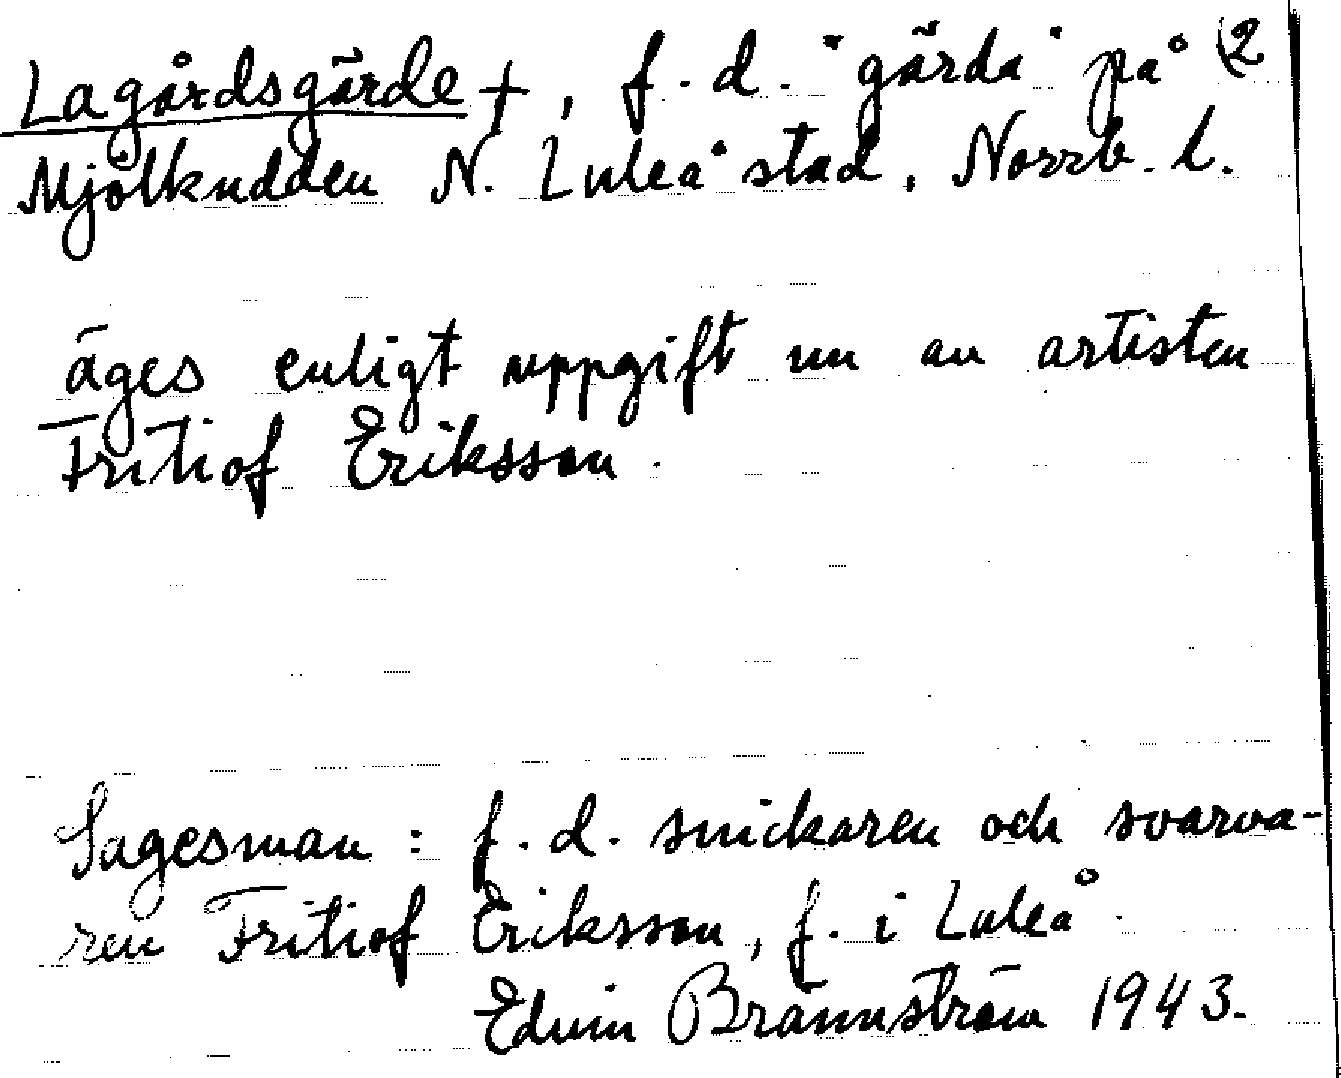 Lagårdsgärde †, f.d. "gärda" på (2
Mjölkudden N. Luleå stad, Norrb. l.
äges enligt uppgift nu av artisten
Fritiof Eriksson.
Sagesman: f.d. snickaren och svarva-
ren Fritiof Eriksson, f. i Luleå.
Edvin Brännström 1943.